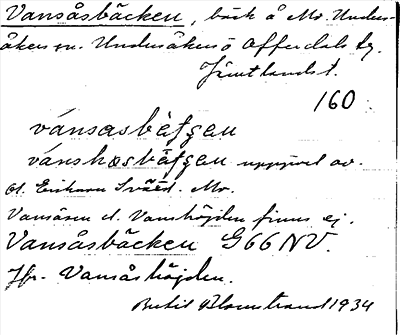 Vansåsbäcken, bäck å Mo, Unders-
åkers sn. Undersåkers o Offerdals tg.
Jämtlands l.
160
vánsasbètgen
vánshosbètgen uppmul av
Vansåsen el. Vanshöjden finns ej.
Vansåsbäcken G66NV.
Jfr. Vansåshöjden.
Bertil Blomstrand 1934